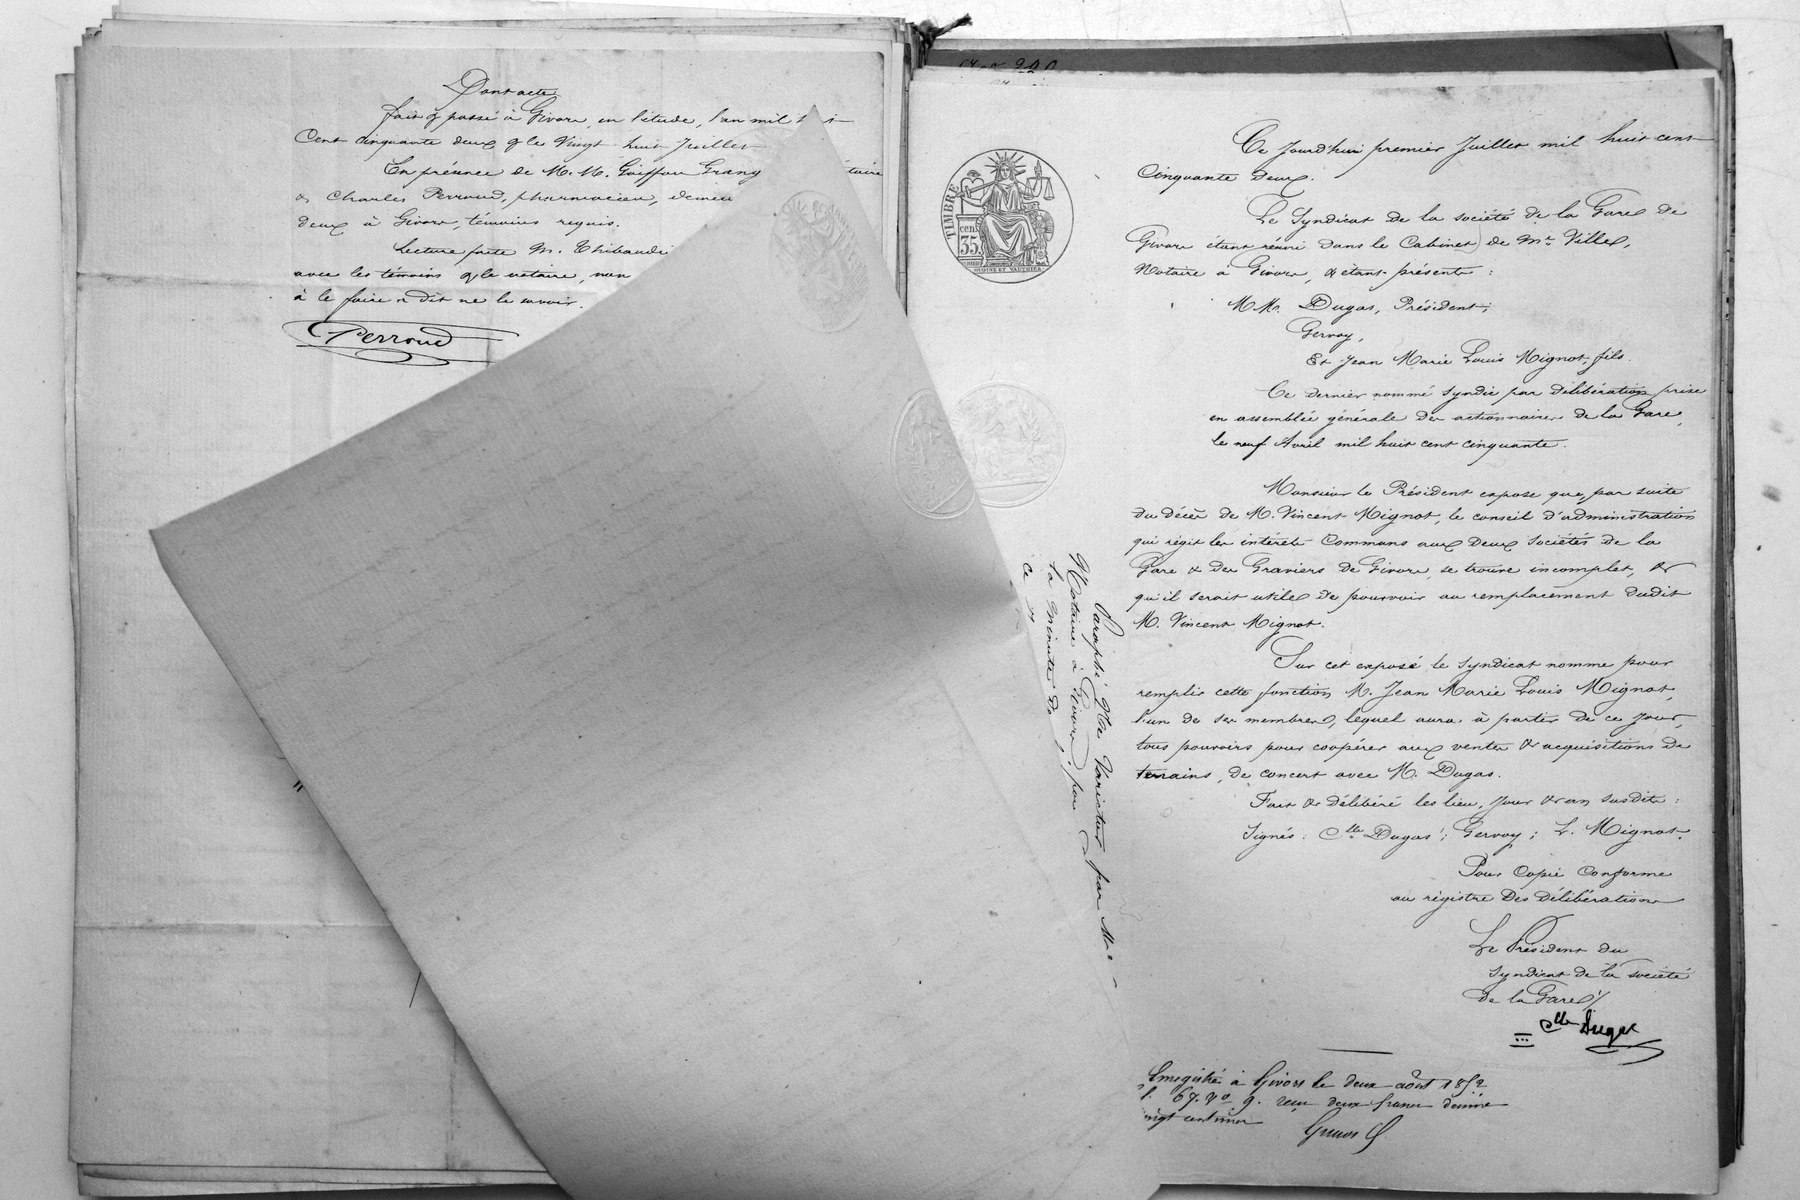 Dont acte
fait & passé à Givors, en l'étude, l'an mil
Cent cinquante deux & le Vingt huit Juillet
En présence de M.M. Goiffon Grang
& Charles Perroud, pharmacien, demeu
deux à Givors, témoins requis.
Lecture faite M. Thibaudi
avec les témoins & le notaire, non
à le faire a dit ne le savoir.
Perroud
Ce Jourd'hui premier Juillet mil huit cent
Cinquante deux.
TIMBRE
cen.
35
Le Syndicat de la société de la Gare de
Givors étant réuni dans le Cabinet de Mr. Ville,
Notaire à Givors, & étant présents :
M.M. Dugas, Président ;
Gervoy,
Et Jean Marie Louis Mignot, fils.
Ce dernier nommé syndic par délibération prise
en assemblée générale des actionnaires de la Gare,
le neuf Avril mil huit cent cinquante.
Monsieur le Président expose que, par suite
du décès de M. Vincent Mignot, le conseil d'administration
qui régit les intérêts Communs aux deux sociétés de la
Gare & des Graviers de Givors, se trouve incomplet, &
qu'il serait utile de pourvoir au remplacement dudit
M. Vincent Mignot.
Sur cet exposé le syndicat nomme pour
remplir cette fonction M. Jean Marie Louis Mignot,
l'un de ses membres, lequel aura à partir de ce jour,
tous pouvoirs pour coopérer aux ventes & acquisitions de
terrains, de concert avec M. Dugas.
Fait & délibéré les lieu, jour & an susdits :
Signés : Clle Dugas ; Gervoy ; L. Mignot.
Pour Copie Conforme
au régistre des délibérations
Le Président du
Syndicat de la société
de la Gare
Clle Dugas
Enregistré à Givors le deux août 1852
f. 67. Vo 9. reçu deux francs décime
vingt centimes
Paraphé Ne Varietur par Me
Notaire à Givors, par
la minute de
ce